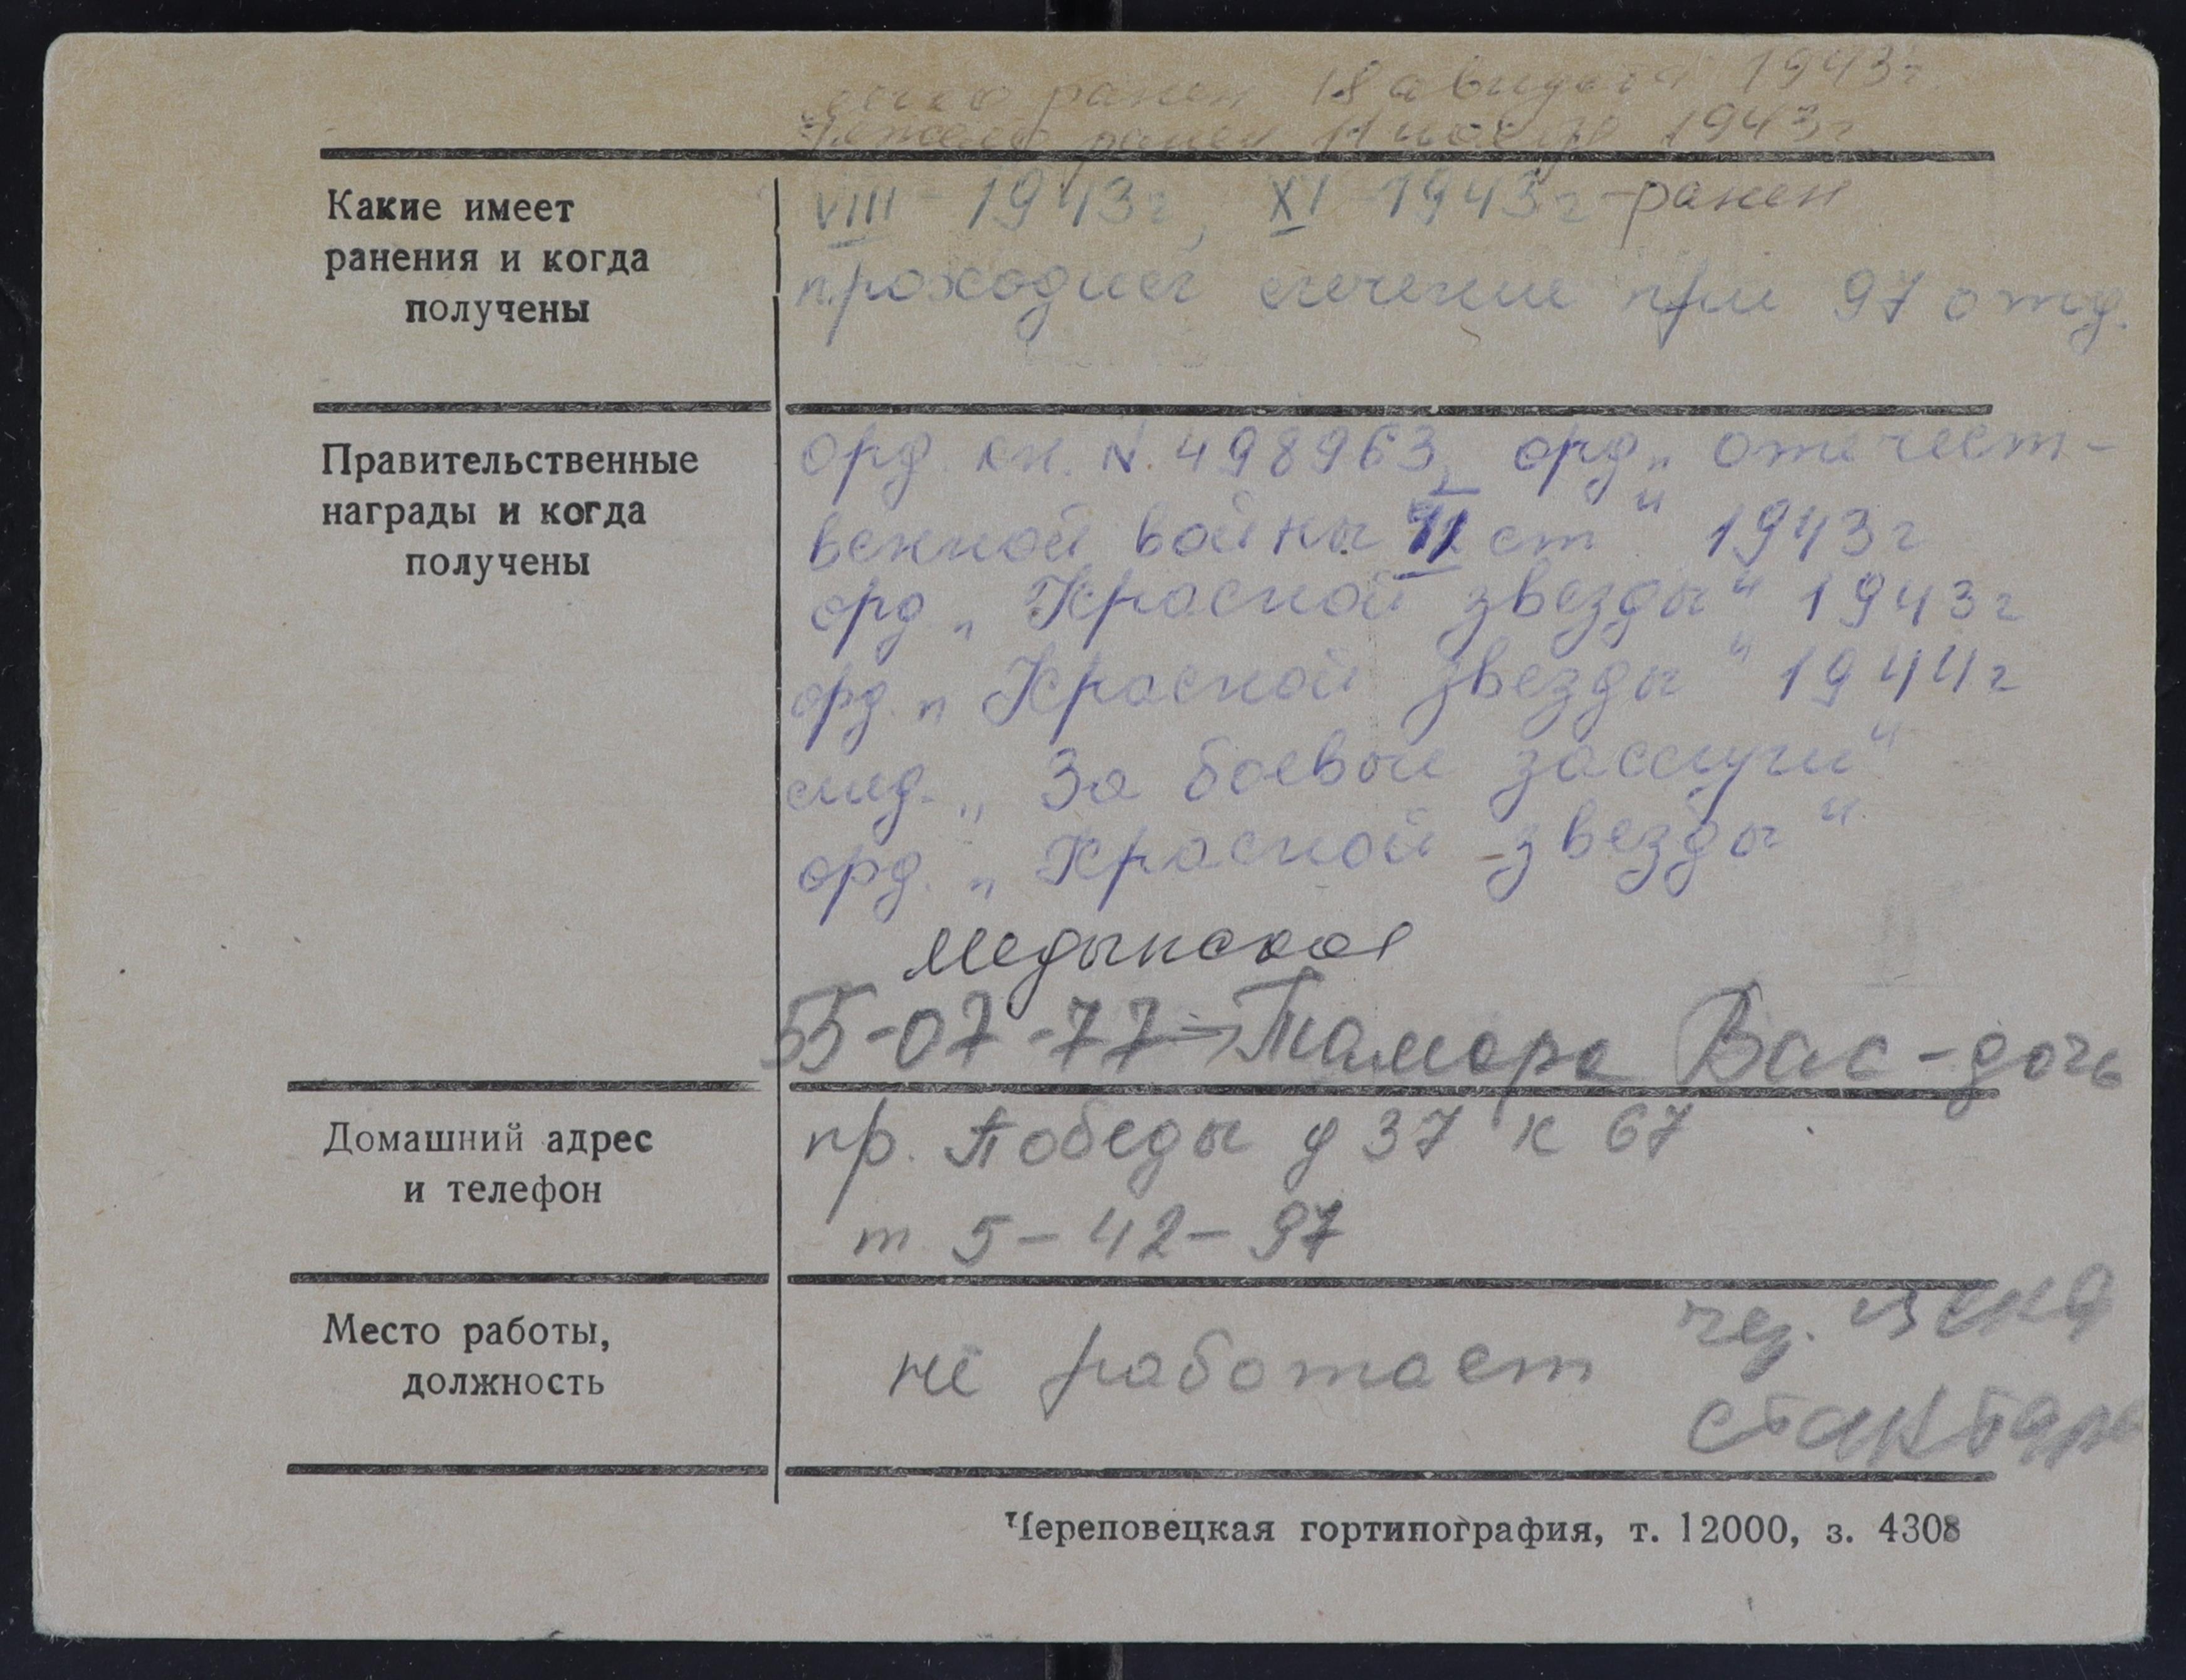 легко ранен 18 августа 1943 г.
Тяжело ранен 11 ноября 1943 г
Какие имеет
ранения и когда
получены
VIII - 1943 г, XI 1943 г - ранен
проходил лечение при 97 отд.
Правительственные
награды и когда
получены
орд. кн. N. 498963, орд. „отечест-
венной войны II ст" 1943 г
орд „Красной звезды" 1943 г
орд. „Красной звезды" 1944 г
мед. „За боевые заслуги"
орд. „Красной звезды"
Медынская
55-07-77 → Тамара Вас - дочь
Домашний адрес
и телефон
пр. Победы д 37 к 67
т 5-42-97
Место работы,
должность
не работает
Череповецкая гортипография, т. 12000, з. 4308